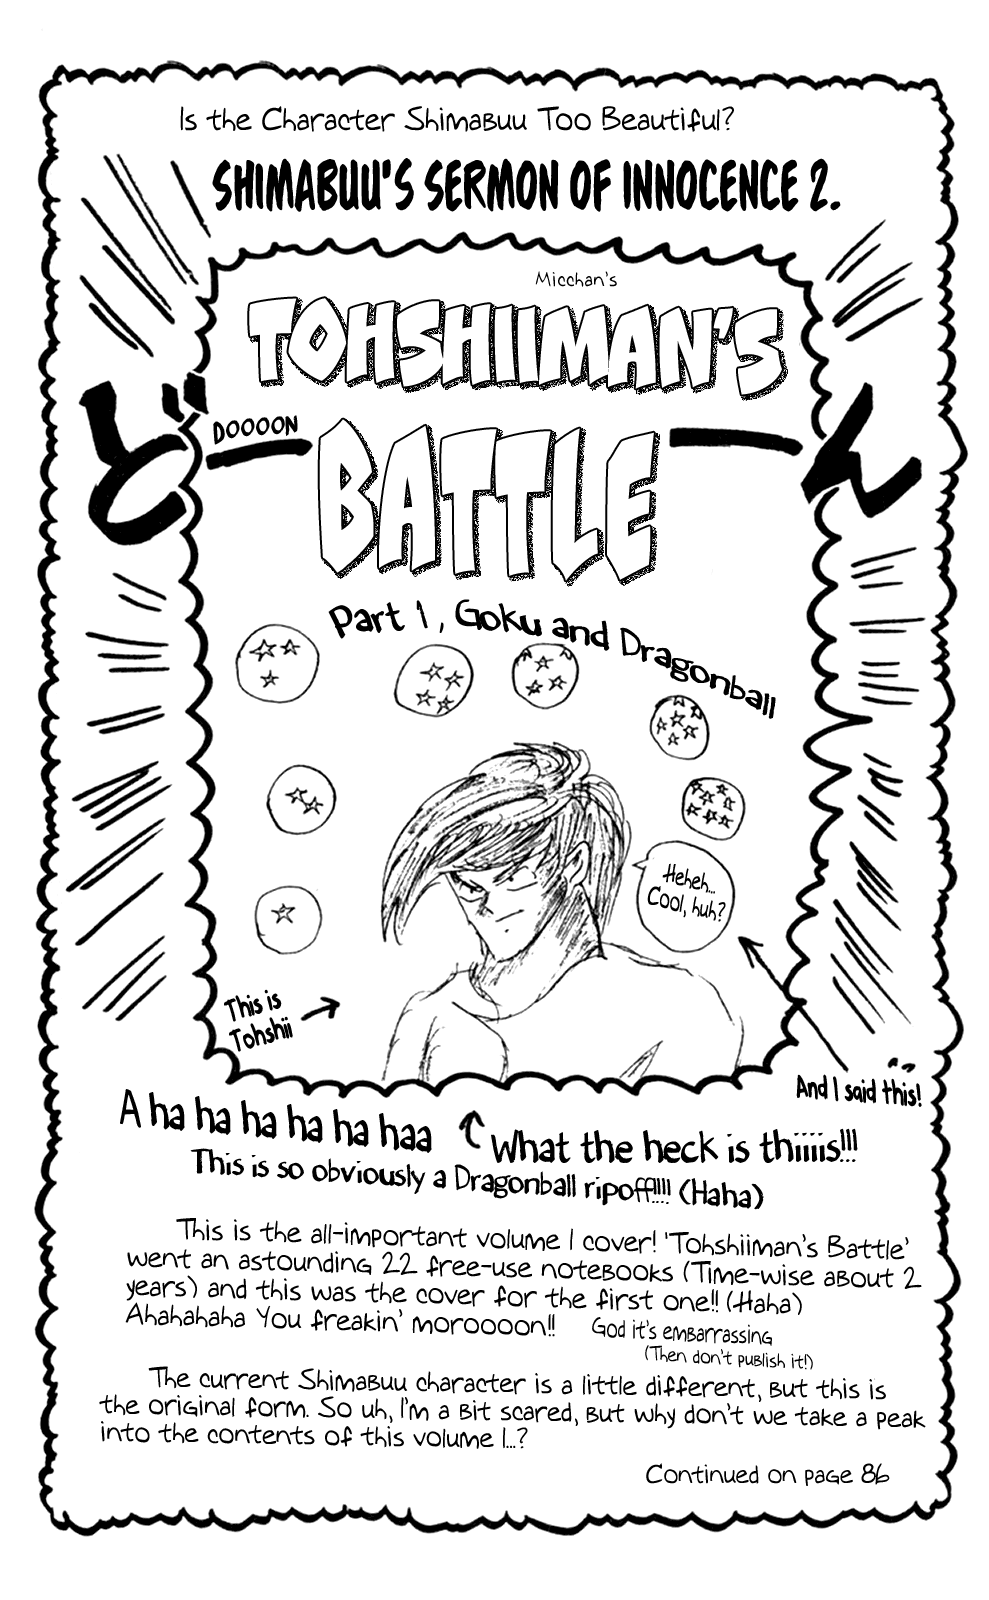 Is the Character Shimabuu Too Beautiful?
SHIMABUU'S SERMON OF INNOCENCE 2.
Micchan's
TOHSHIIMAN'S
BATTLE
ど
DOOOON
ーん
Part 1, Goku and Dragonball
Heheh...
Cool, huh?
This is
Tohshii
And I said this!
A ha ha ha ha ha haa
What the heck is thiiiis!!!
This is so obviously a Dragonball ripoff!!!! (Haha)
This is the all-important volume 1 cover! 'Tohshiiman's Battle'
went an astounding 22 free-use notebooks (Time-wise about 2
years) and this was the cover for the first one!! (Haha)
Ahahahaha You freakin' moroooon!!
God it's embarrassing
(Then don't publish it!)
The current Shimabuu character is a little different, but this is
the original form. So uh, I'm a bit scared, but why don't we take a peak
into the contents of this volume 1...?
Continued on page 86